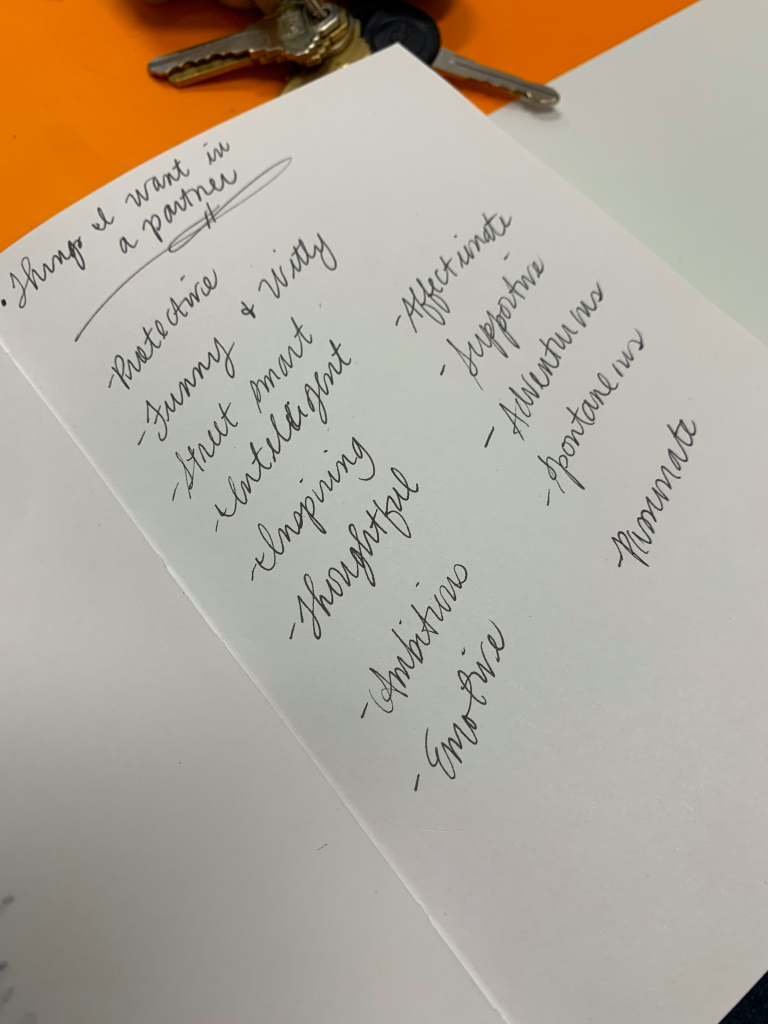 . Things I want in
a partner
- Protective
- Funny & Witty
- Street smart
- Intelligent
- Inspiring
- Thoughtful
- Ambitious
- Emotive
- Affectionate
- Supportive
- Adventurous
- Spontaneous